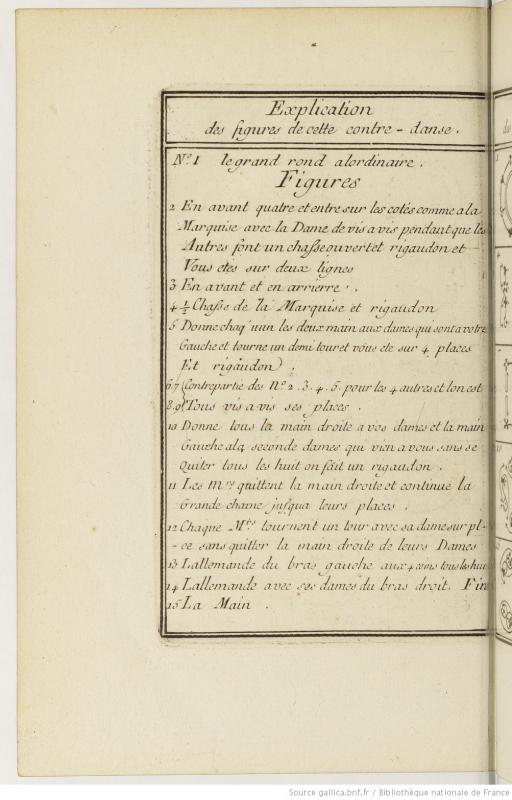 Explication
des figures de cette contre-danse.
N.o 1 le grand rond alordinaire.
Figures
2 En avant quatre et entre sur les cotés comme a la
Marquise avec la Dame de vis a vis pendant que les
Autres font un chasse ouvert et rigaudon et
Vous etes sur deux lignes
3 En avant et en arriere.
4 ½ Chasse de la Marquise et rigaudon
5 Donne chaq'uun les deux main aux dames qui sont a votre
Gauche et tourne un demi tour et vous ete sur 4 places
Et rigaudon.
6.7 Contrepartie des N.o 2. 3. 4. 5. pour les 4 autres et lon est
8.9 Tous vis a vis ses places.
10 Donne tous la main droite a vos dames et la main
Gauche ala seconde dames qui vien a vous sans se
Quiter tous les huit on fait un rigaudon.
11 Les M.rs quittent la main droite et continue la
Grande chaine jusqua leurs places.
12 Chaque M.rs tournent un tour avec sa dame sur pl-
-ce sans quitter la main droite de leurs Dames
13 Lallemande du bras gauche aux 4 coins tous les huit
14 Lallemande avec ses dames du bras droit. Fin
15 La Main.
Source gallica.bnf.fr / Bibliothèque nationale de France